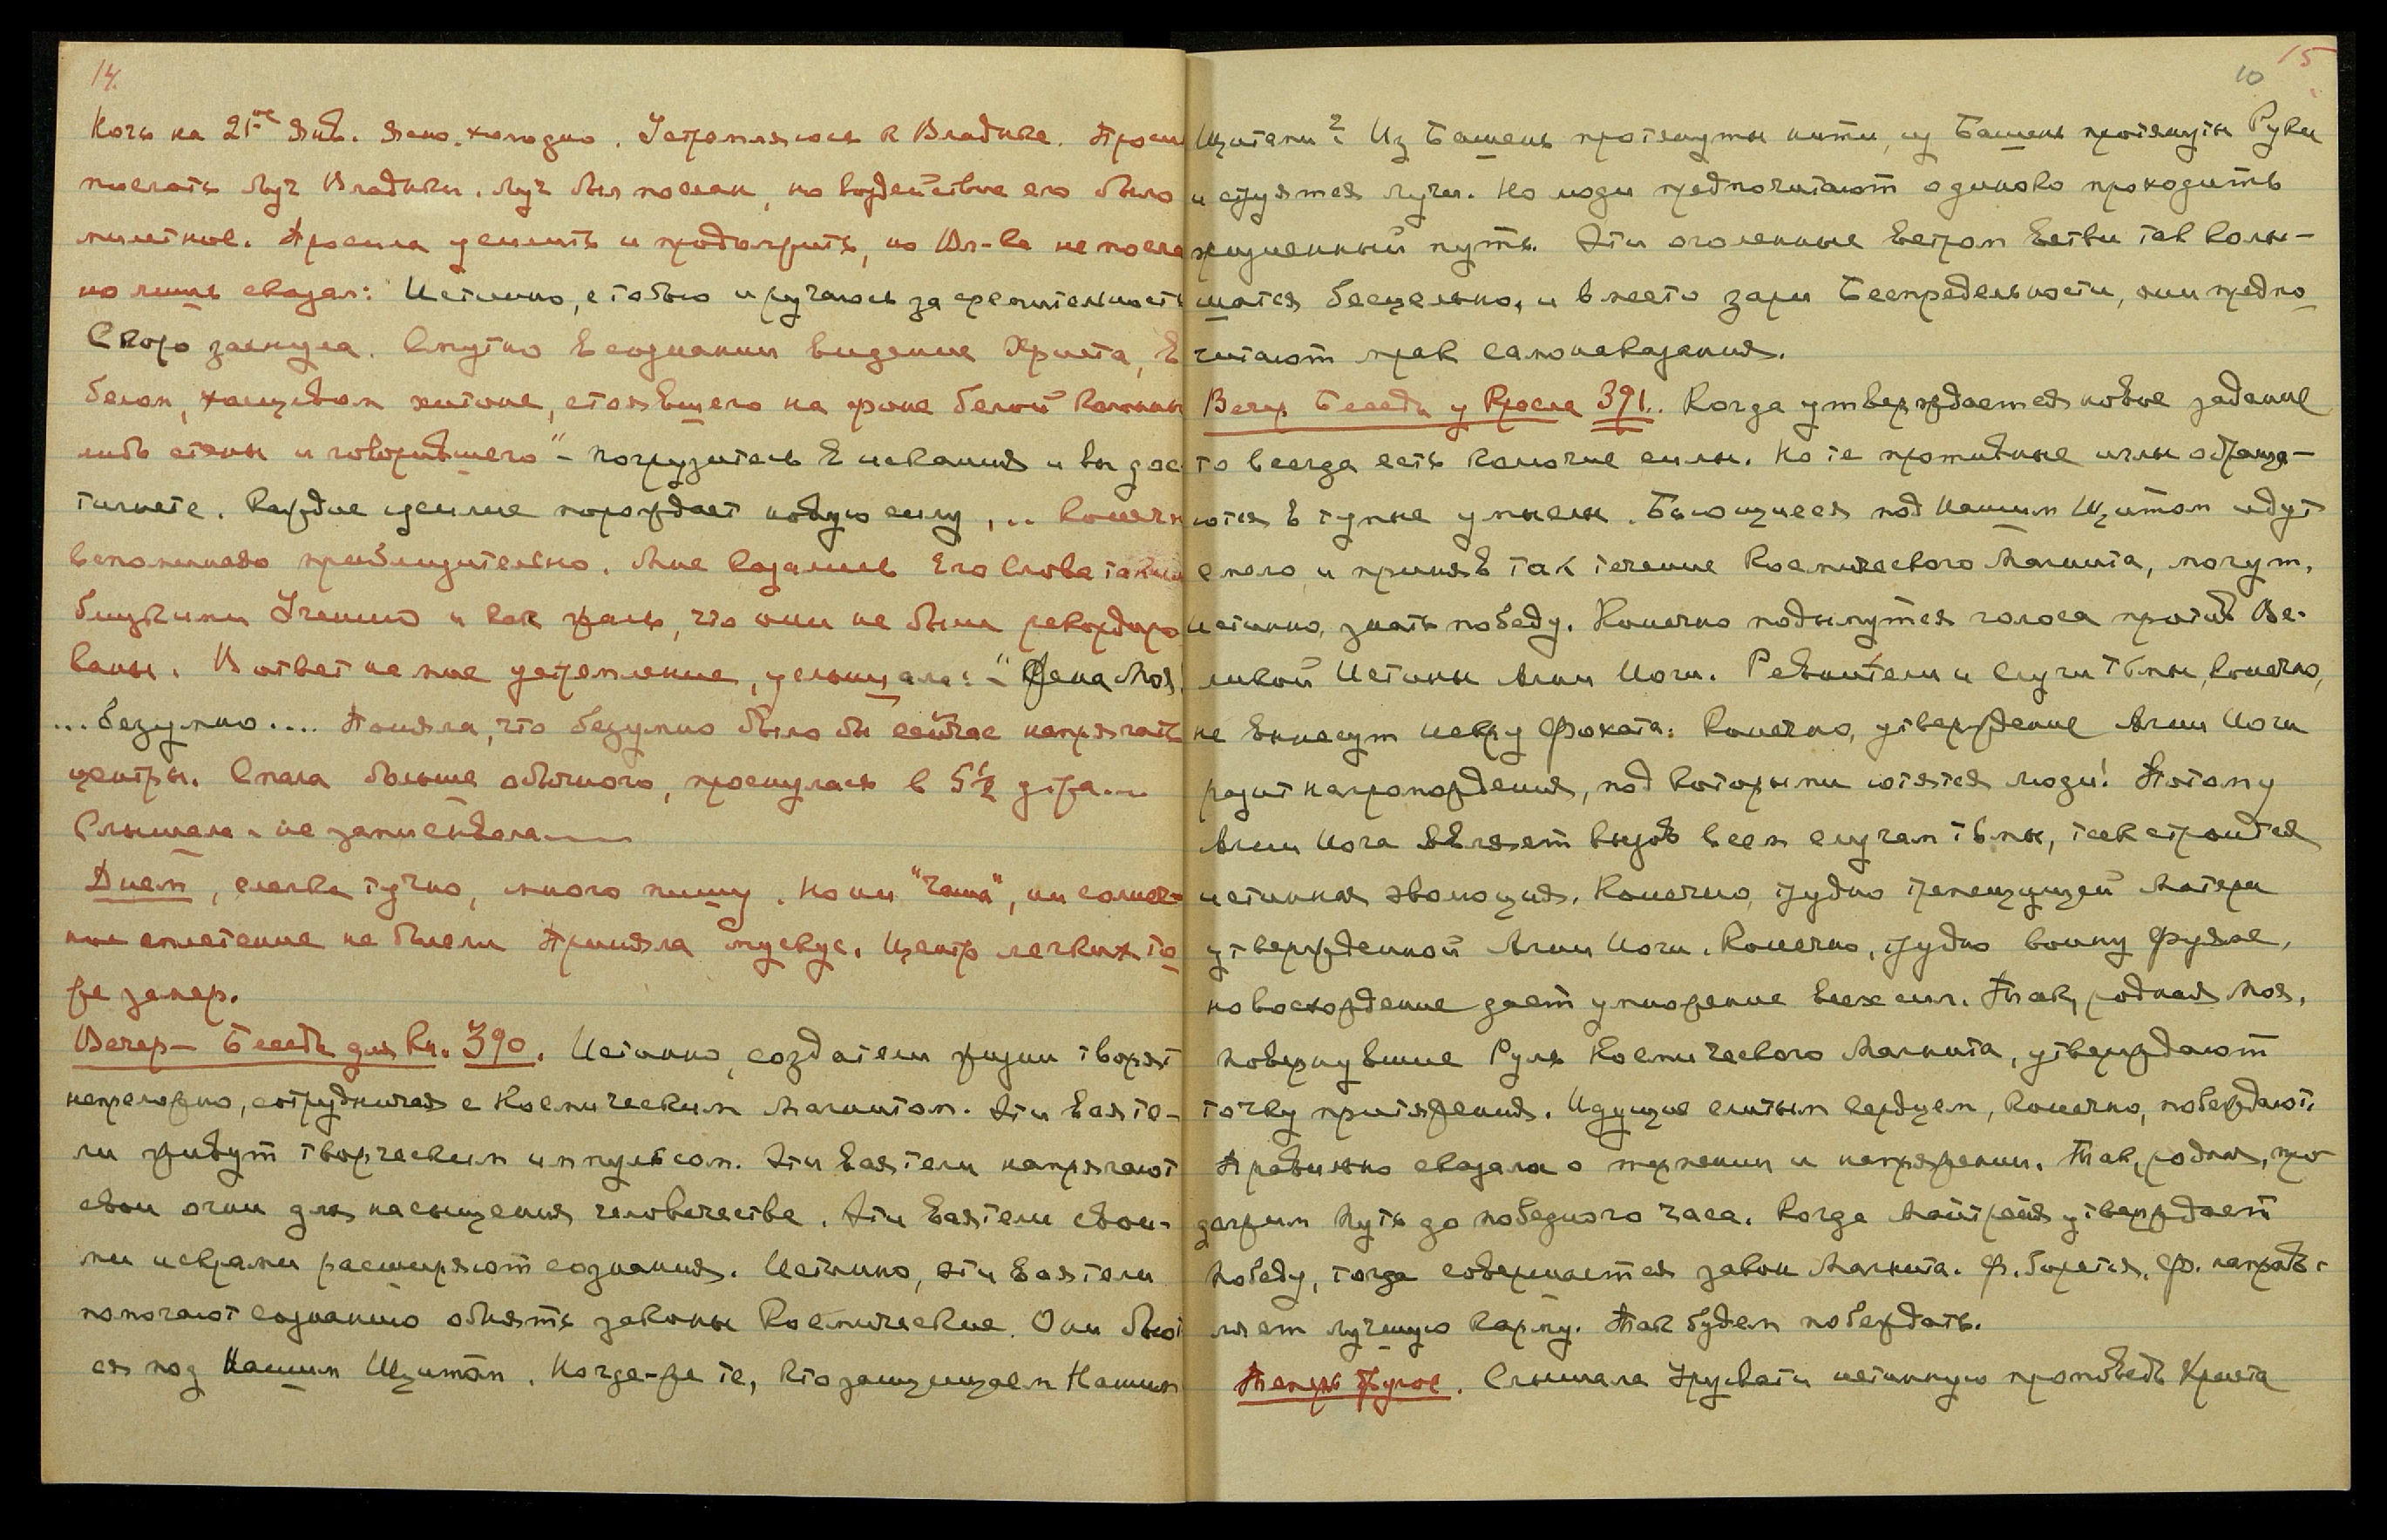 14.
Ночь на 21-ое Янв. Ясно, холодно. Устремляюсь к Владыке. Прош
послать Луч Владыки. Луч был послан, но воздействие его было
мгнов. Просила усилить и продолжить, но Вл-ка не посла
но лишь сказал: Истинно, с тобою и ручаюсь за стремительность
Скоро заснула. Смутно в сознании видение Христа, в
белом, холщевом хитоне, стоявшего на фоне белой колонны
либо стены и говорившего "– погрузитесь в искания и вы дос
тигнете. Каждое усилие порождает новую силу, .. Конечн
вспоминаю приблизительно. Мне казались Его Слова такими
близкими Учению и как жаль, что они не были рекордиро
ваны. В ответ на мое устремление, услышала: – "Жена Моя!
... безумно.... Поняла, что безумно было бы сейчас напрягать
центры. Спала больше обычного, проснулась в 5½ утра...
Слышала – не записывала
Днем, слегка тучно, много пишу. Но ни "Чаша", ни солнеч-
ное сплетение не болели Приняла мускус. Центр легких то
же замер.
Вечер – Беседа для Кн. 390. Истинно, создатели жизни творят
непреложно, сотрудничая с Космическим Магнитом. Эти ваяте-
ли живут творческим импульсом. Эти ваятели напрягают
свои огни для насыщения человечества. Эти ваятели свои-
ми искрами расширяют сознания. Истинно, эти ваятели
помогают сознанию объять законы Космические. Они бьют
ся под Нашим Щитом. Но где-же те, кто защищаем Нашим
10 15
Щитами? Из Башень протянуты нити, из Башень протянуты Руки
и струятся лучи. Но люди предпочитают одиноко проходить
жизненный путь. Эти оголенные ветром ветви так колы-
шатся бесцельно, и вместо зари Беспредельности, они предпо
читают мрак самонаказания.
Вечер. Беседа у Кресла 391. Когда утверждается новое задание
то всегда есть колючие силы. Но те противные иглы обраща-
ются в тупые умыслы. Бьющиеся под Нашим Щитом идут
смело и приняв так течение Космического Магнита, могут,
истинно, знать победу. Конечно подымутся голоса против Ве-
ликой Истины Агни Йоги. Ревнители и слуги тьмы, конечно,
не вынесут искру Фохата. Конечно, утверждение Агни Йоги
разит нагромождения, под которыми ютятся люди! Потому
Агни Йога являет вызов всем слугам тьмы, так строится
истинная эволюция. Конечно, трудно трепещущей Матери
утвержденной Агни Йоги. Конечно, трудно воину Фуяме,
но восхождение дает умножение всех сил. Так, родная Моя,
повернувшие Руль Космического Магнита, утверждают
точку притяжения. Идущие слитым сердцем, конечно, побеждают.
Правильно сказала о терпении и напряжении. Так, родная, про
должим Путь до победного часа. Когда Майтрейя утверждает
победу, тогда совершается закон Магнита. Ф. борется. Ф. направ-
ляет лучшую карму. Так будем побеждать.
Теперь другое. Слышала Урусвати истинную проповедь Христа